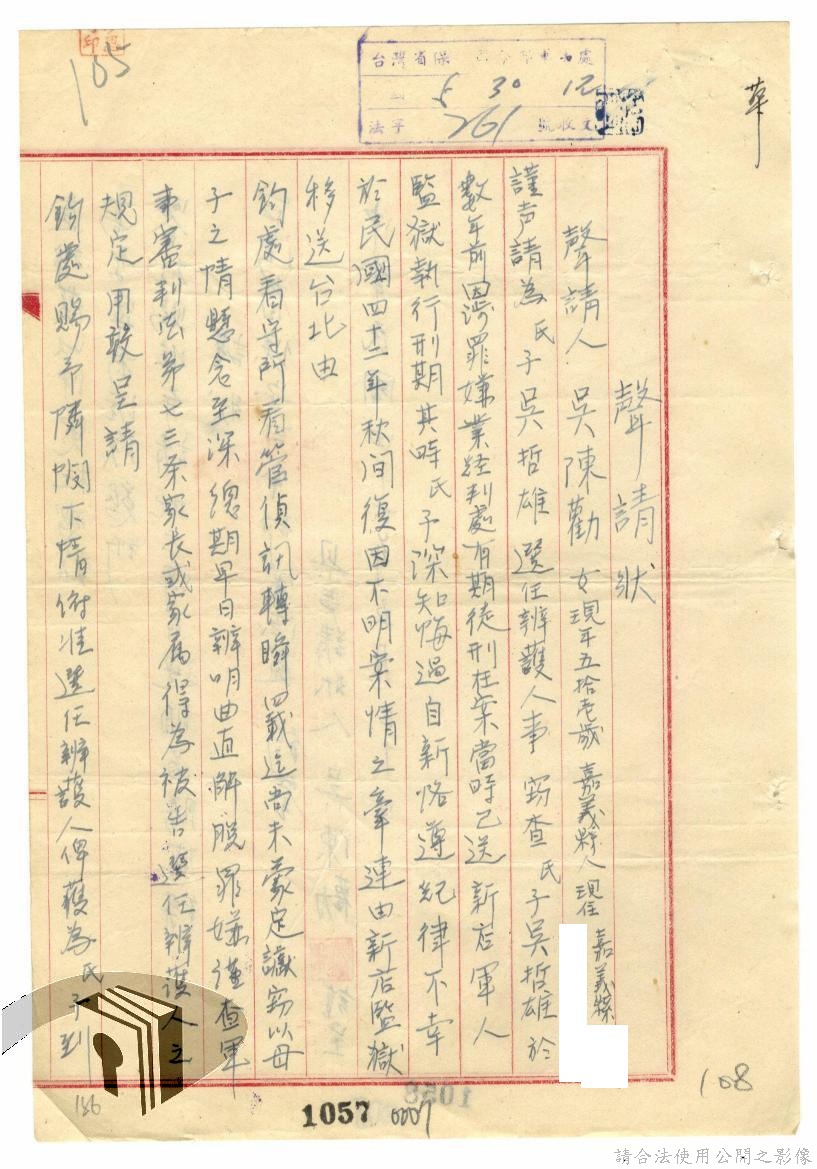 105
台灣省保
處
5 30 12
法字 261 號收文
華
聲請狀
聲請人 吳陳勸 女 現年五拾壱歲 嘉義縣人 現住 嘉義縣
謹声請為氏子吳哲雄選任辦護人事竊查氏子吳哲雄於
數年前因涉罪嫌業經判處有期徒刑在案當時已送新店軍人
監獄執行刑期其時氏子深知悔過自新恪遵紀律不幸
於民國四十二年秋间復因不明案情之牽連由新店監獄
移送台北由
鈞處看守所看管偵訊轉瞬四載迄尚未蒙定讞竊以母
子之情懸念至深總期早日辦明曲直解脫罪嫌謹查軍
事審判法第七三条家長或家属得為被告選任辦護人之
規定用敢呈請
鈞處賜予隣憫下情俯准選任辦護人俾護為氏子到
108
186
1057
0007
1058
請合法使用公開之影像